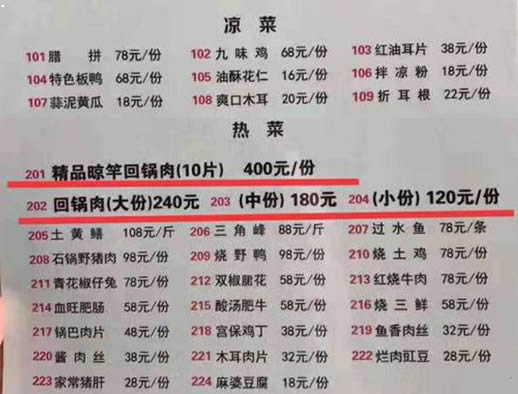 凉菜
101 腊拼 78元/份 102 九味鸡 68元/份 103 红油耳片 38元/份
104 特色板鸭 68元/份 105 油酥花仁 16元/份 106 拌凉粉 18元/份
107 蒜泥黄瓜 18元/份 108 爽口木耳 20元/份 109 折耳根 22元/份
热菜
201 精品晾竿回锅肉(10片) 400元/份
202 回锅肉(大份)240元 203 (中份) 180元 204 (小份) 120元/份
205 土黄鳝 108元/斤 206 三角峰 88元/斤 207 过水鱼 78元/条
208 石锅野猪肉 98元/份 209 烧野鸭 98元/份 210 烧土鸡 78元/份
211 青花椒仔兔 78元/份 212 双椒腰花 58元/份 213 红烧牛肉 78元/份
214 血旺肥肠 58元/份 215 酸汤肥牛 58元/份 216 烧三鲜 58元/份
217 锅巴肉片 48元/份 218 宫保鸡丁 38元/份 219 鱼香肉丝 32元/份
220 酱肉丝 38元/份 221 木耳肉片 32元/份 222 烂肉豇豆 28元/份
223 家常猪肝 28元/份 224 麻婆豆腐 18元/份